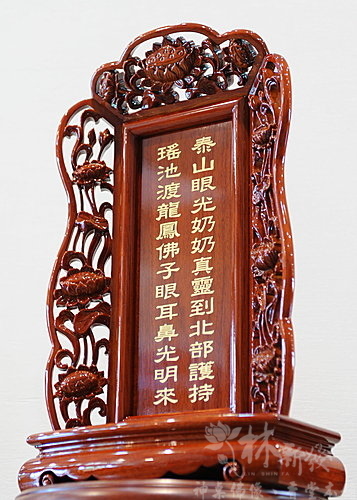 泰山眼光奶奶真靈到北部護持
瑤池渡龍鳳佛子眼耳鼻光明來